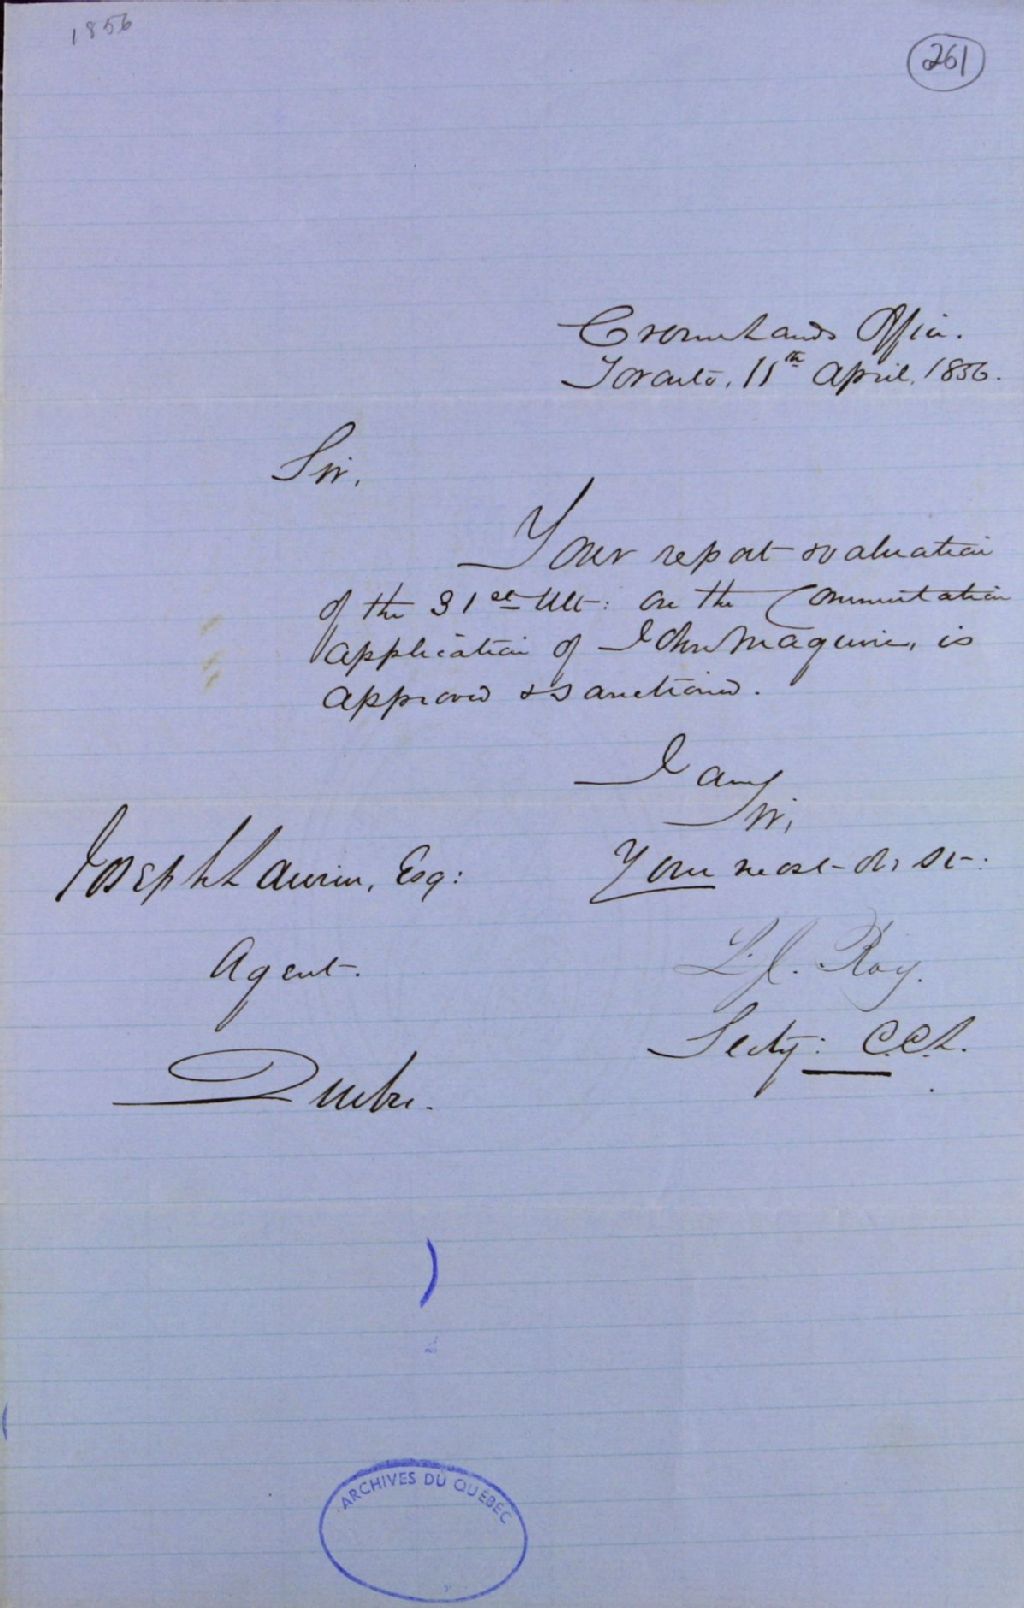 1856
261
Crown Lands Office.
Toronto, 11th April, 1856.
Sir,
Your report & valuation
of the 31st Ult: on the Commutation
application of John Maguire, is
approved & sanctioned.
I am,
Sir,
Your most ob. st.
Joseph Laurin, Esq:
Agent.
Quebec.
L.J. Roy.
Secty: C.C.L.
ARCHIVES DU QUÉBEC